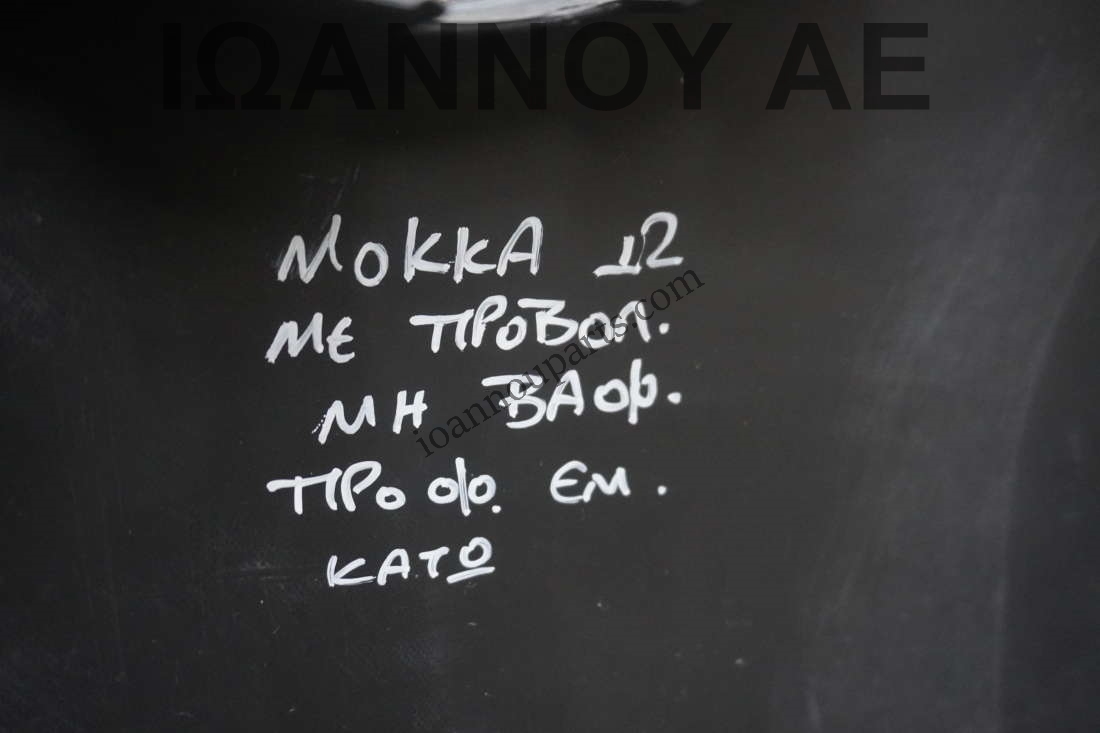 ΙΩΑΝΝΟΥ ΑΕ
ΜΟΚΚΑ 12
ΜΕ ΠΡΟΒΟΛ.
ioannouparts.com
ΜΗ ΒΑΦ.
ΠΡΟΦ. ΕΜ.
ΚΑΤΩ